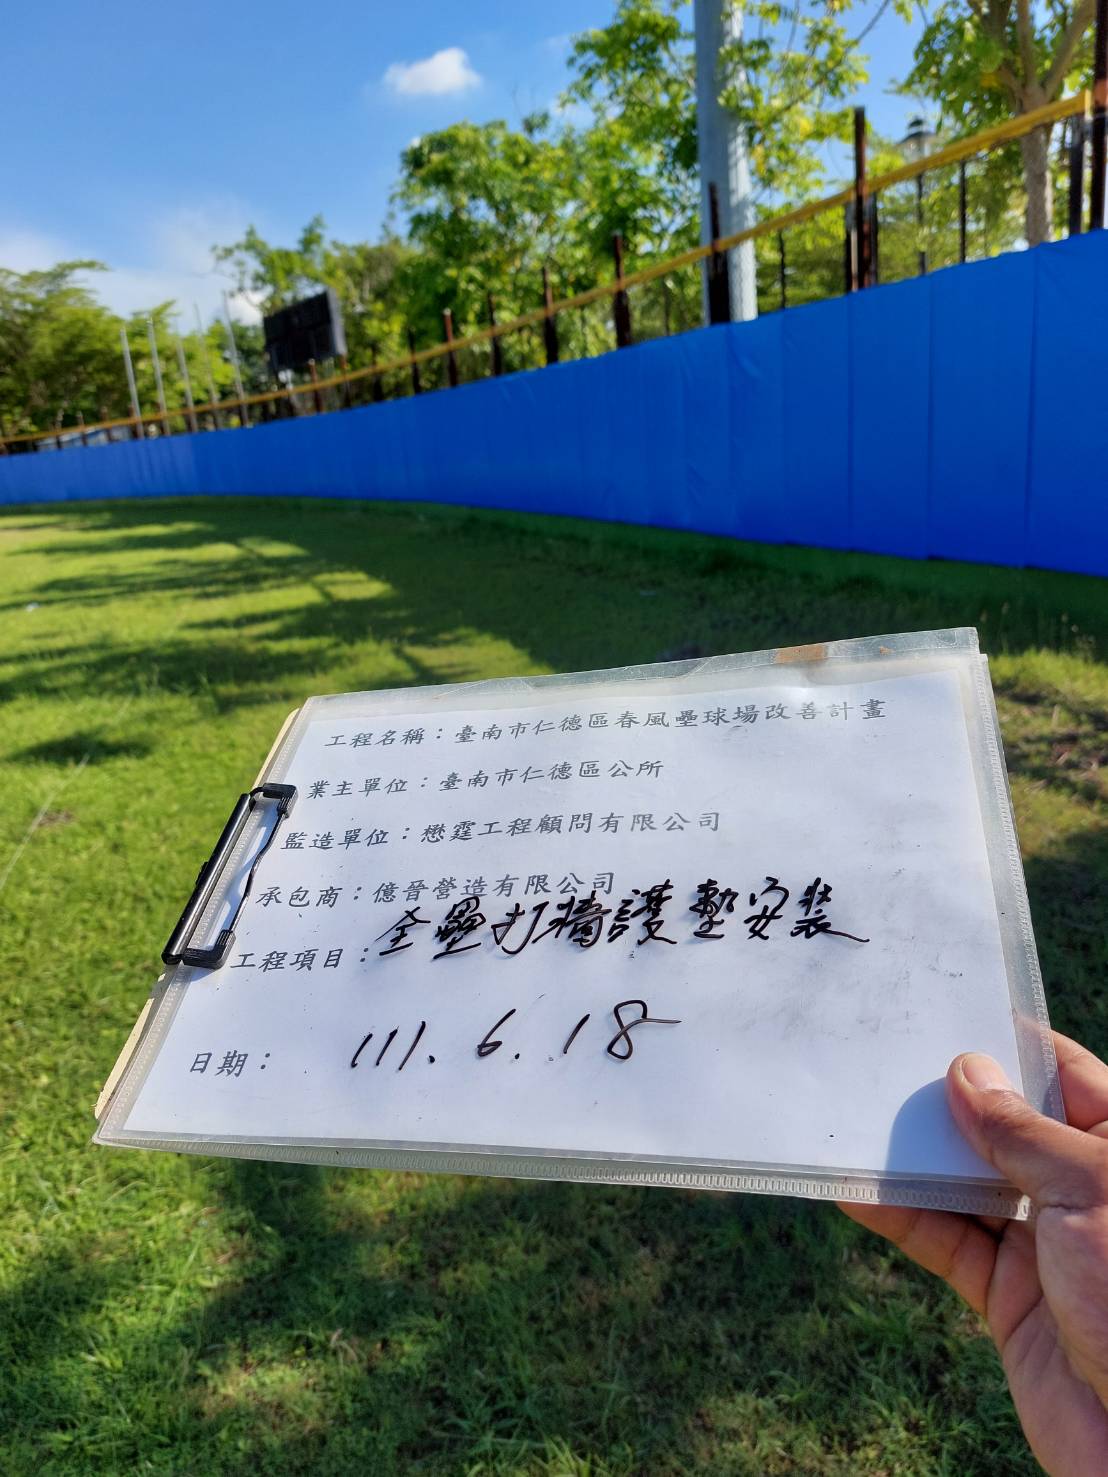 工程名稱：臺南市仁德區春風壘球場改善計畫
業主單位：臺南市仁德區公所
監造單位：懋霆工程顧問有限公司
承包商：億晉營造有限公司
工程項目：全壘打牆護墊安裝
日期：111.6.18